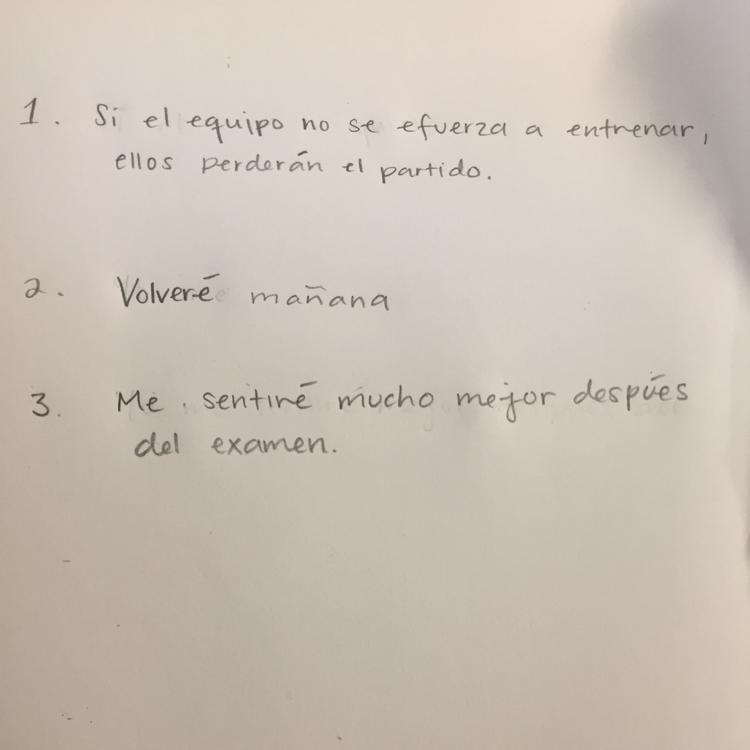 1. Si el equipo no se efuerza a entrenar,
ellos perderán el partido.
2. Volveré mañana
3. Me sentiré mucho mejor despúes
del examen.